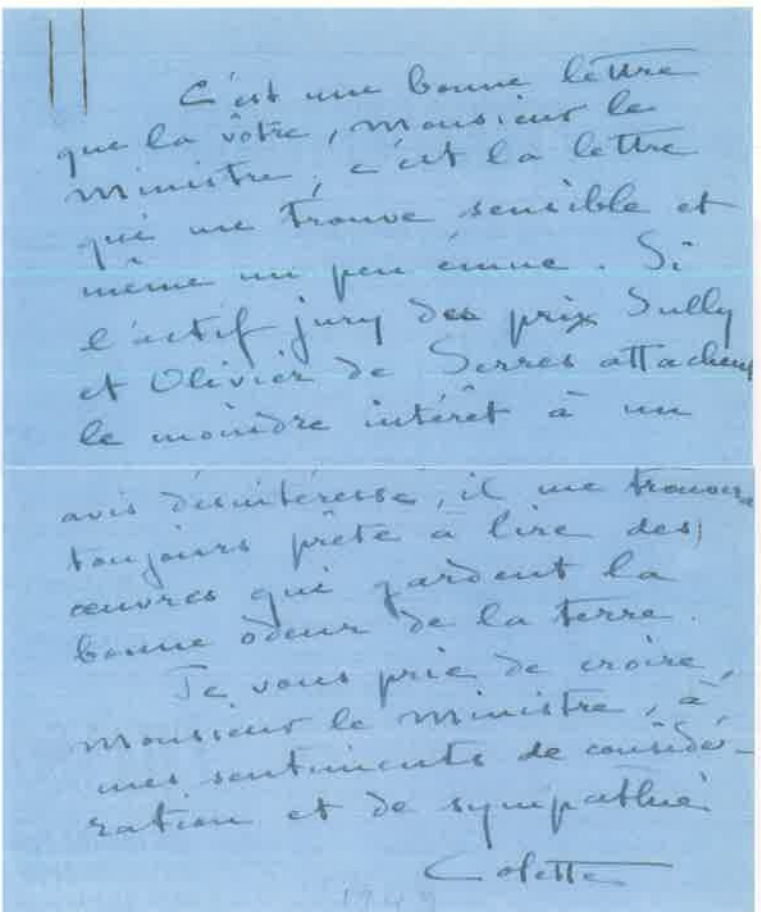 C'est une bonne lettre
que la vôtre, Monsieur le
Ministre, c'est la lettre
qui me trouve sensible et
même un peu émue. Si
l'actif jury des prix Sully
et Olivier de Serres attachent
le moindre intérêt à un
avis désintéressé, il me trouvera
toujours prête à lire des
œuvres qui gardent la
bonne odeur de la terre.
Je vous prie de croire,
Monsieur le Ministre, à
mes sentiments de considé-
ration et de sympathie
Colette
1949